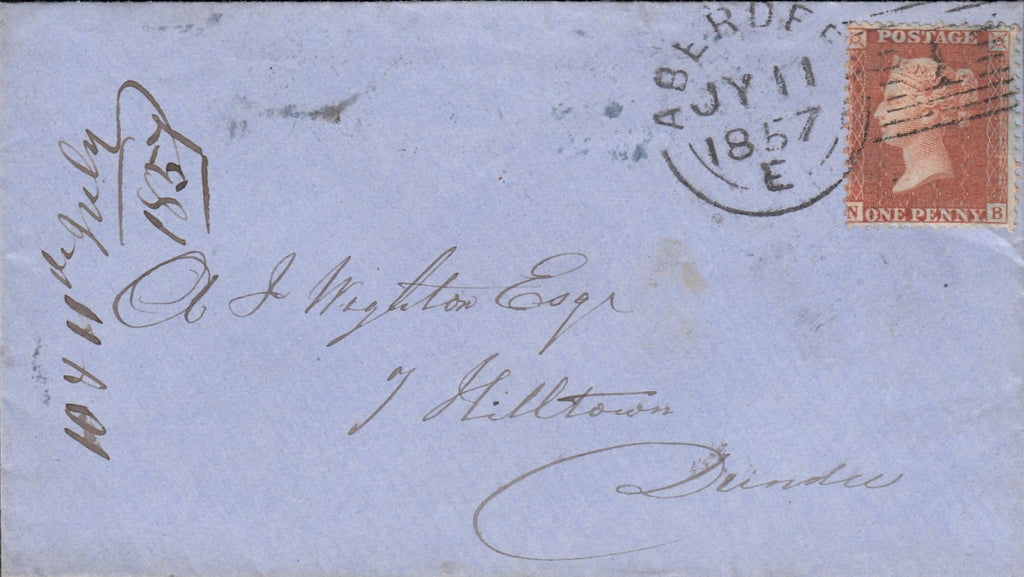 ABERDEE
JY 11
1857
E
POSTAGE
N ONE PENNY B
10 & 11 de July
1857
A J Wighton Esqr
7 Hilltown
Dundee